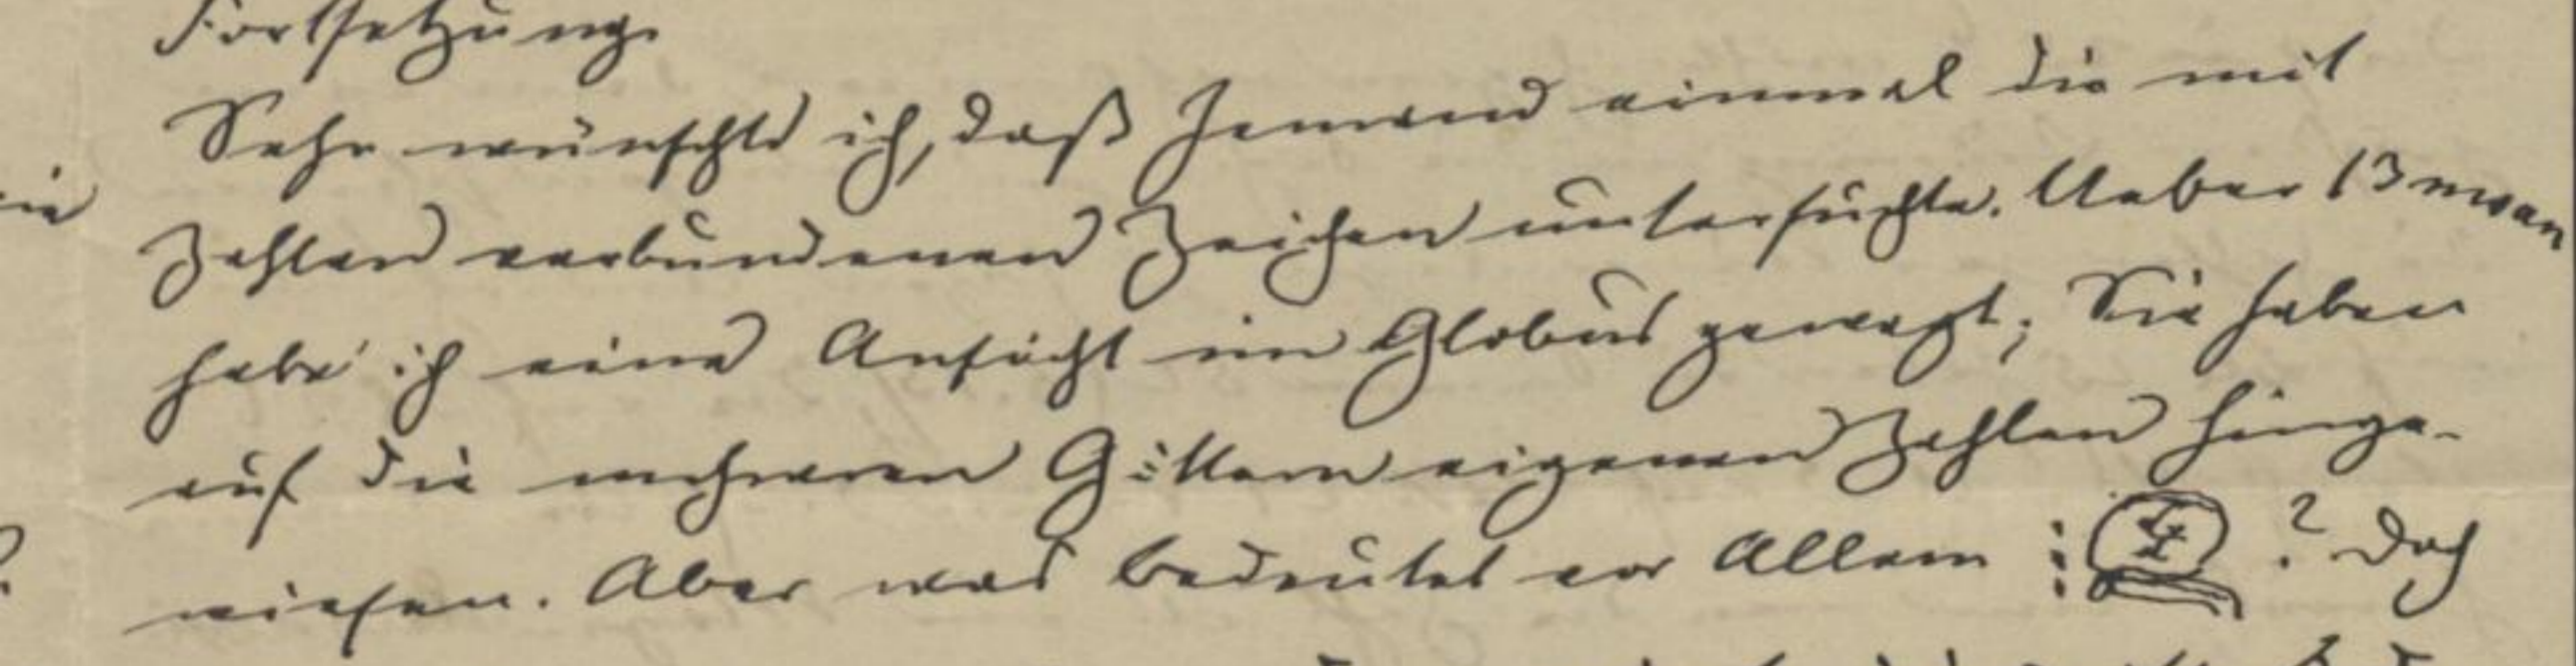 Fortsetzung.
Sehr wünschte ich, daß Jemand einmal die mit
Zahlen verbundenen Zeichen untersuchte. Ueber 13 moan
habe ich eine Ansicht im Globus gewagt; Sie haben
auf die mehreren Göttern eigenen Zahlen hinge-
wiesen. Aber was bedeutet vor Allem : ? Doch